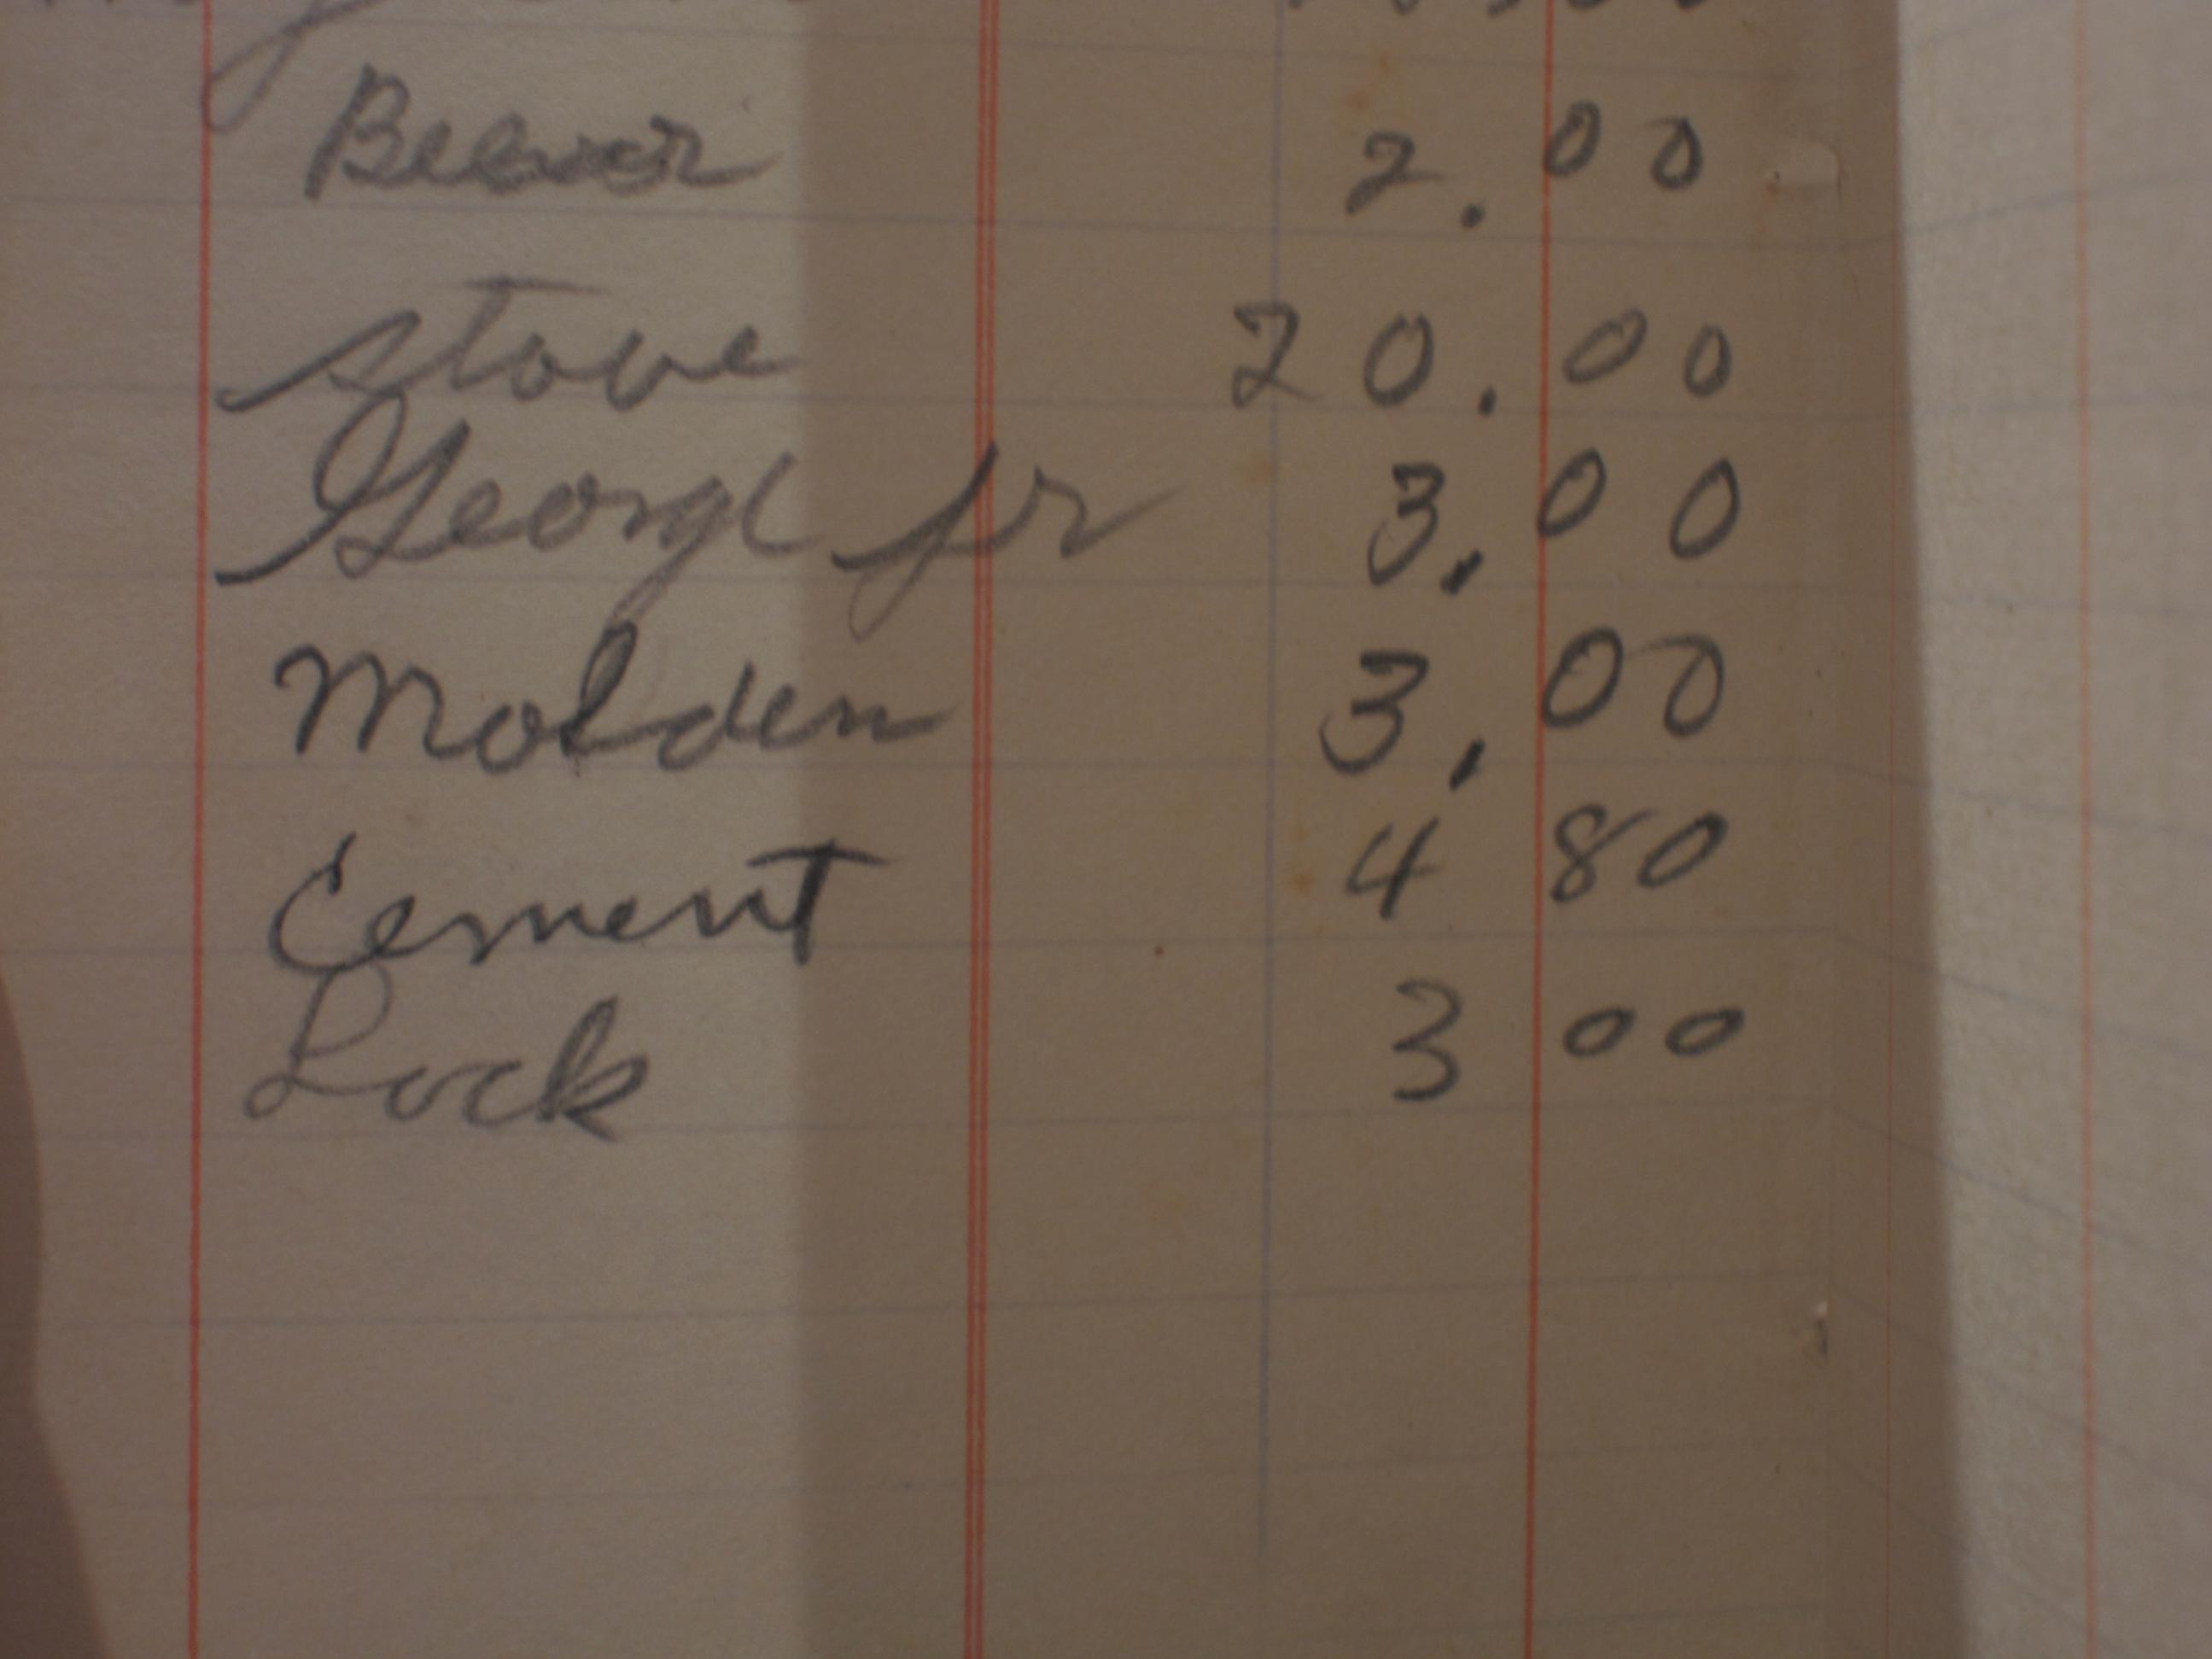 2.00
stove 20.00
George Jr 3.00
Molden 3.00
Cement 4 80
Lock 3 00